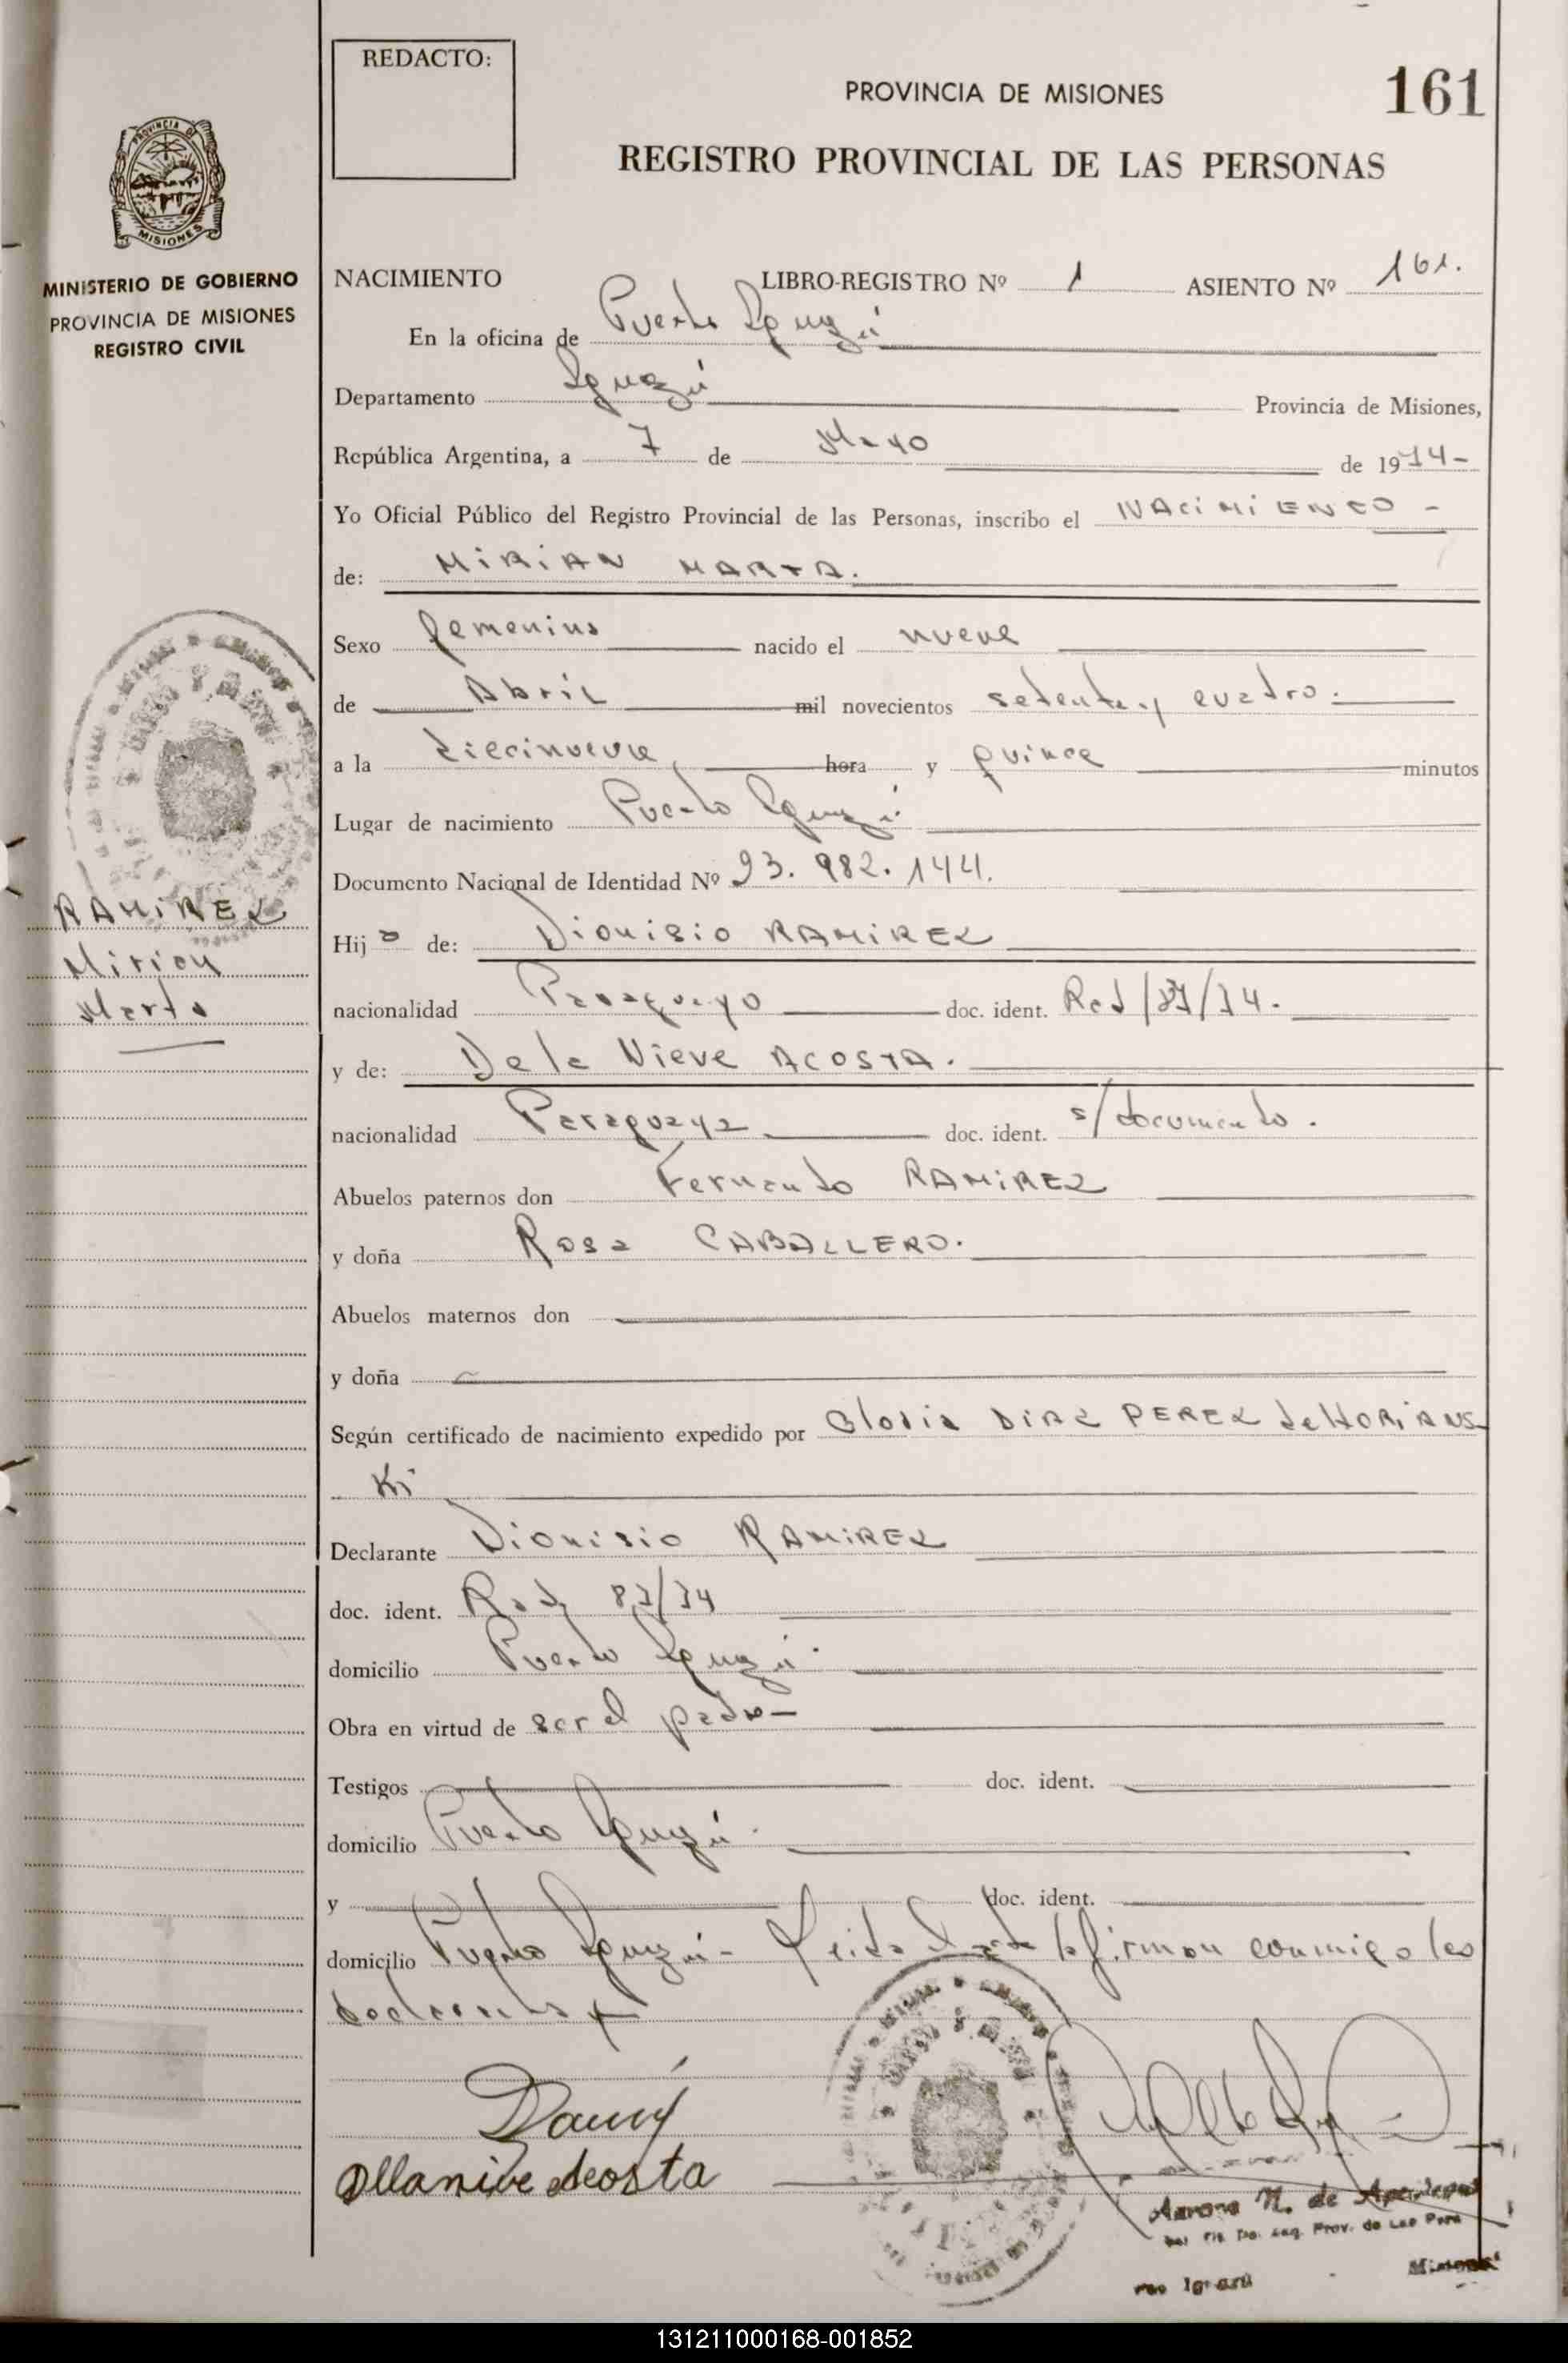 REDACTO:
PROVINCIA DE MISIONES
161
REGISTRO PROVINCIAL DE LAS PERSONAS
PROVINCIA DE
MISIONES
MINISTERIO DE GOBIERNO
PROVINCIA DE MISIONES
REGISTRO CIVIL
NACIMIENTO LIBRO-REGISTRO Nº 1 ASIENTO Nº 161.
En la oficina de Puerto Iguazú
Departamento Iguazú Provincia de Misiones,
República Argentina, a 7 de Mayo de 1974-
Yo Oficial Público del Registro Provincial de las Personas, inscribo el NACIMIENTO -
de: MIRIAN MARTA.
Sexo femenino nacido el nueve
de Abril mil novecientos setenta y cuatro.
a la diecinueve hora y quince minutos
Lugar de nacimiento Puerto Iguazú
Documento Nacional de Identidad Nº 23.982.144.
RAMIREZ
Mirian
Marta
Hija de: Dionisio RAMIREZ
nacionalidad Paraguayo doc. ident. Rad/87/74.
y de: De la Nieve ACOSTA.
nacionalidad Paraguaya doc. ident. s/documento.
Abuelos paternos don Fernando RAMIREZ
y doña Rosa CABALLERO.
Abuelos maternos don
y doña
Según certificado de nacimiento expedido por Gloria DIAZ PEREZ de HORIANS
Ki
Declarante Dionisio RAMIREZ
doc. ident. Rad 87/74
domicilio Puerto Iguazú.
Obra en virtud de ser el padre-
Testigos doc. ident.
domicilio Puerto Iguazú.
y doc. ident.
domicilio Puerto Iguazú- Leida el acta la firman conmigo los
Acosta
N. de
Prov. de Las Pers
Misiones
131211000168-001852